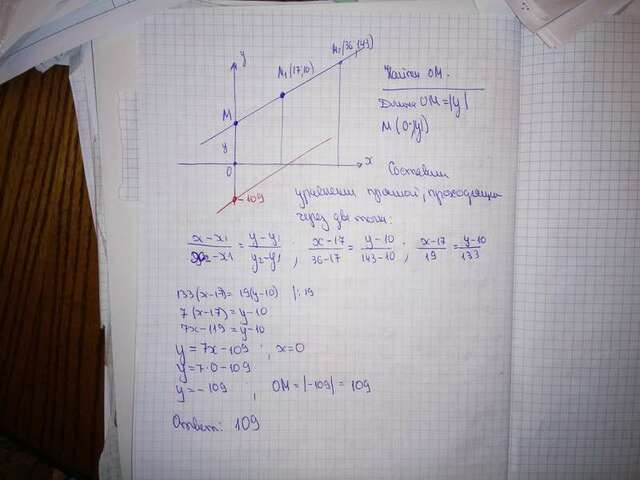 y
M₂(36,143)
M₁(17,10)
M
y
O
x
-109
Найти OM.
Длина OM=|y|
M(0;y)
Составим
уравнение прямой, проходящей
через две точки:
x-x₁/x₂-x₁ = y-y₁/y₂-y₁ ; x-17/36-17 = y-10/143-10 ; x-17/19 = y-10/133
133(x-17)=19(y-10) |:19
7(x-17)=y-10
7x-119=y-10
y=7x-109 ; x=0
y=7·0-109
y=-109 , OM=|-109|=109
Ответ: 109